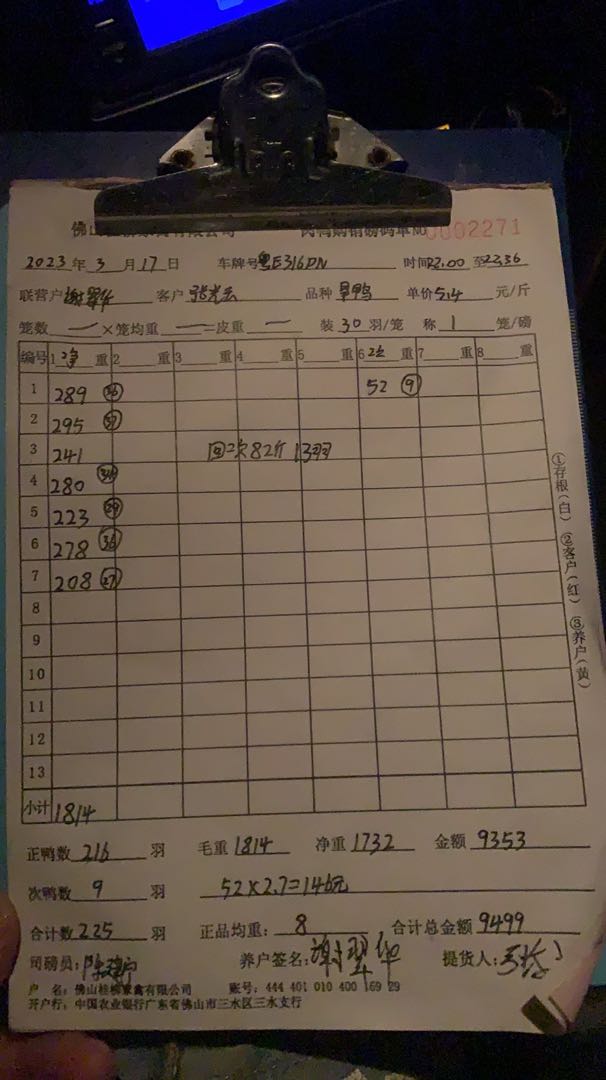 佛山 有限公司 肉鸭购销磅码单 № 0092271
2023年 3月17日 车牌号粤E316DN 时间22:00至22:36
联营户谢翠华 客户 品种 单价5.4 元/斤
笼数 一 ×笼均重 一 =皮重 一 装 30 羽/笼 称 1 笼/磅
编号 1 净 重 2 重 3 重 4 重 5 重 6 次 重 7 重 8 重
1 289 52 9
2 295 37
3 241 回二次82斤 13羽
4 280
5 223 29
6 278 36
7 208 27
8
9
10
11
12
13
小计 1814
①存根(白) ②客户(红) ③养户(黄)
正鸭数 216 羽 毛重 1814 净重 1732 金额 9353
次鸭数 9 羽 52×2.7=146元
合计数 225 羽 正品均重: 8 合计总金额 9499
司磅员: 养户签名: 谢翠华 提货人:
户 名: 佛山桂柳家禽有限公司 账号: 444 401 010 400 169 29
开户行: 中国农业银行广东省佛山市三水区三水支行